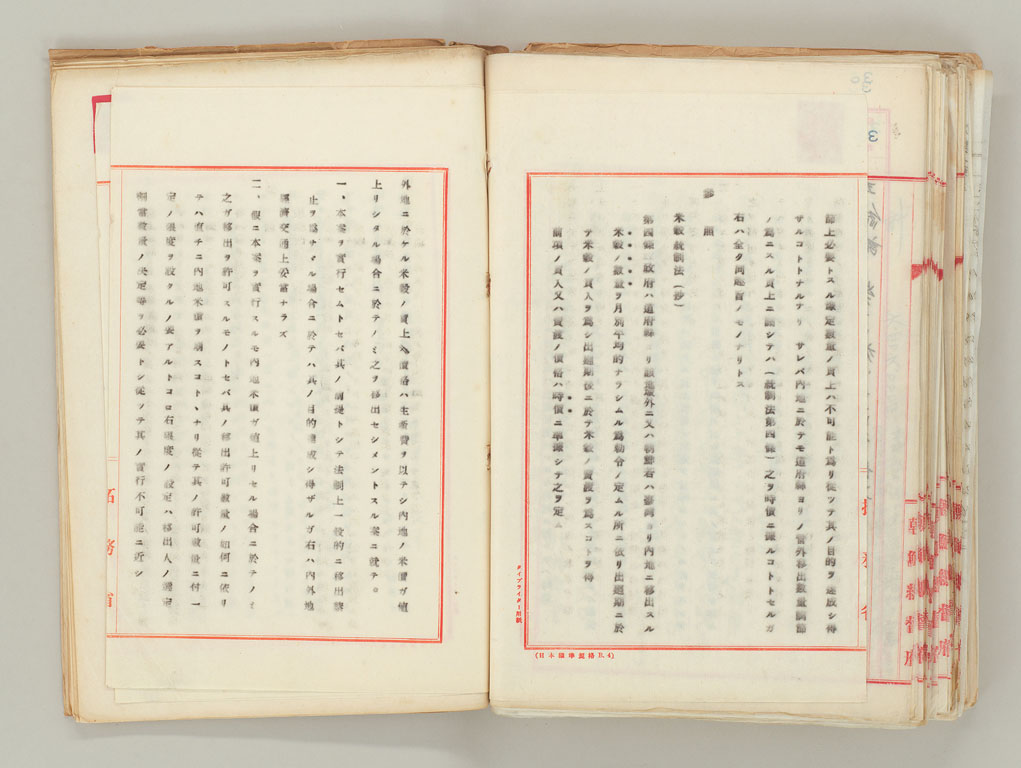 節上必要トスル線定数量ノ買上ハ不可能ト為リ従ツテ其ノ目的ヲ達成シ得
サルコトトナルナリ サレバ内地ニ於テモ道府縣ヨリノ管外移出数量調節
ノ為ニスル買上ニ關シテハ(統制法第四條)之ヲ時價ニ準據ルコトトセルガ
右ハ全タ同趣旨ノモノナリトス
參照
米穀統制法(抄)
第四條 政府ハ道府縣ヨリ該地域外ニ又ハ朝鮮若ハ臺灣ヨリ内地ニ移出スル
米穀ノ數量ヲ月別平均的ナラシムル爲勅令ノ定ムル所ニ依リ出廻期ニ於
テ米穀ノ買入ヲ爲シ出廻期後ニ於テ米穀ノ賣渡ヲ爲スコトヲ得
前項ノ買入又ハ賣渡ノ價格ハ時價ニ準據シテ之ヲ定ム
タイプライター用紙
(日本標準規格B.4)
外地ニ於ケル米穀ノ買上ヘ價格ハ生産費ヲ以テシ内地ノ米價ガ値
上リシタル場合ニ於テノミ之ヲ移出セシメントスル案ニ就テハ
一、本案ヲ實行セムトセバ其ノ前提トシテ法制上一般的ニ移出禁
止ヲ爲サザル場合ニ於テハ其ノ目的達成シ得ザルガ右ハ内外地
經濟交通上妥當ナラズ
二、假ニ本案ヲ實行スルモ内地米價ガ値上リセル場合ニ於テノミ
之ガ移出ヲ許可スルモノトセバ其ノ移出許可數量ノ如何ニ依リ
テハ直チニ内地米價ヲ崩スコトトナリ從テ其ノ許可數量ニ付一
定ノ限度ヲ設クルノ要アルトコロ右限度ノ設定ハ移出人ノ選定
割當數量ノ決定等ヲ必要トシ從ツテ其ノ實行不可能ニ近シ
拓務省
朝鮮總督府
30
3